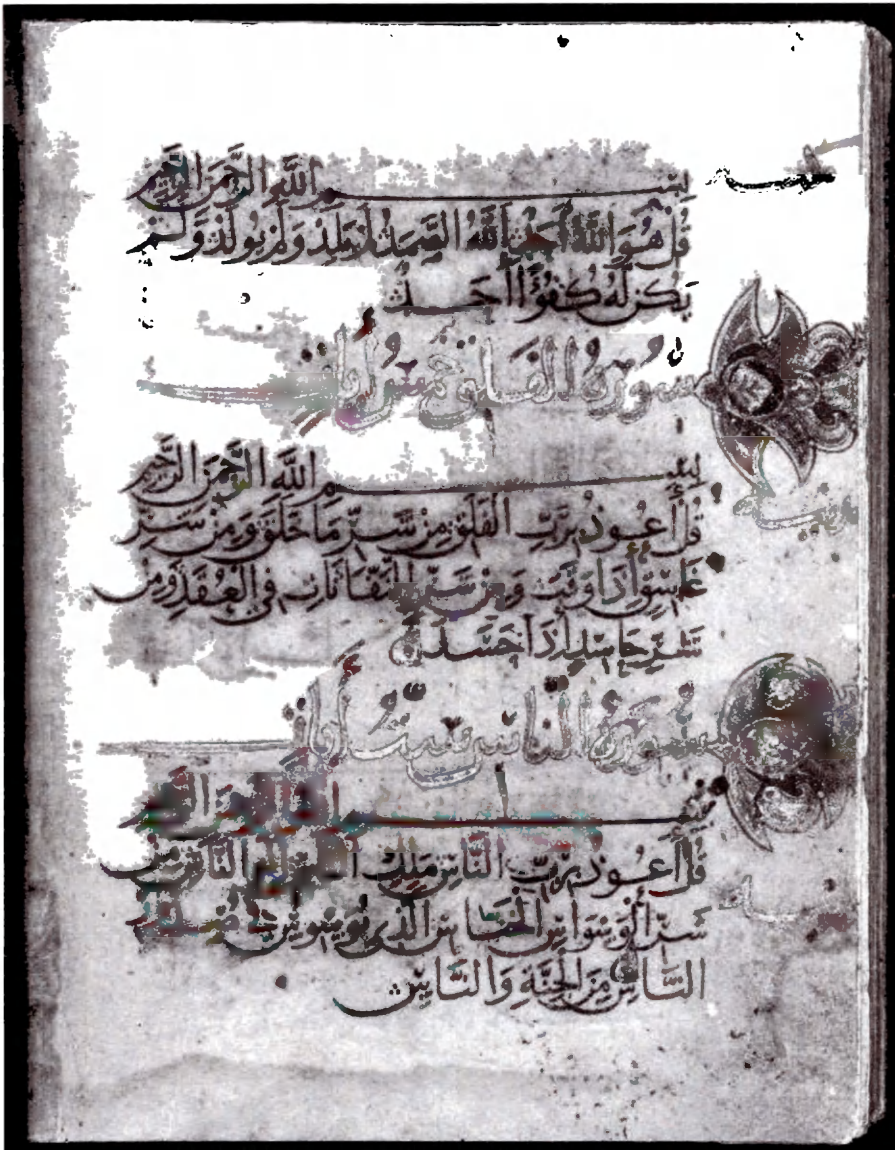 بسم الله الرحمن الرحيم
قل هو الله أحد الله الصمد لم يلد ولم يولد ولم
يكن له كفؤا أحد
سورة الفلق خمس آيات
بسم الله الرحمن الرحيم
قل أعوذ برب الفلق من شر ما خلق ومن شر
غاسق إذا وقب ومن شر النفاثات في العقد ومن
شر حاسد إذا حسد
سورة الناس ست آيات
بسم الله الرحمن الرحيم
قل أعوذ برب الناس ملك الناس إله الناس من
شر الوسواس الخناس الذي يوسوس في صدور
الناس من الجنة والناس